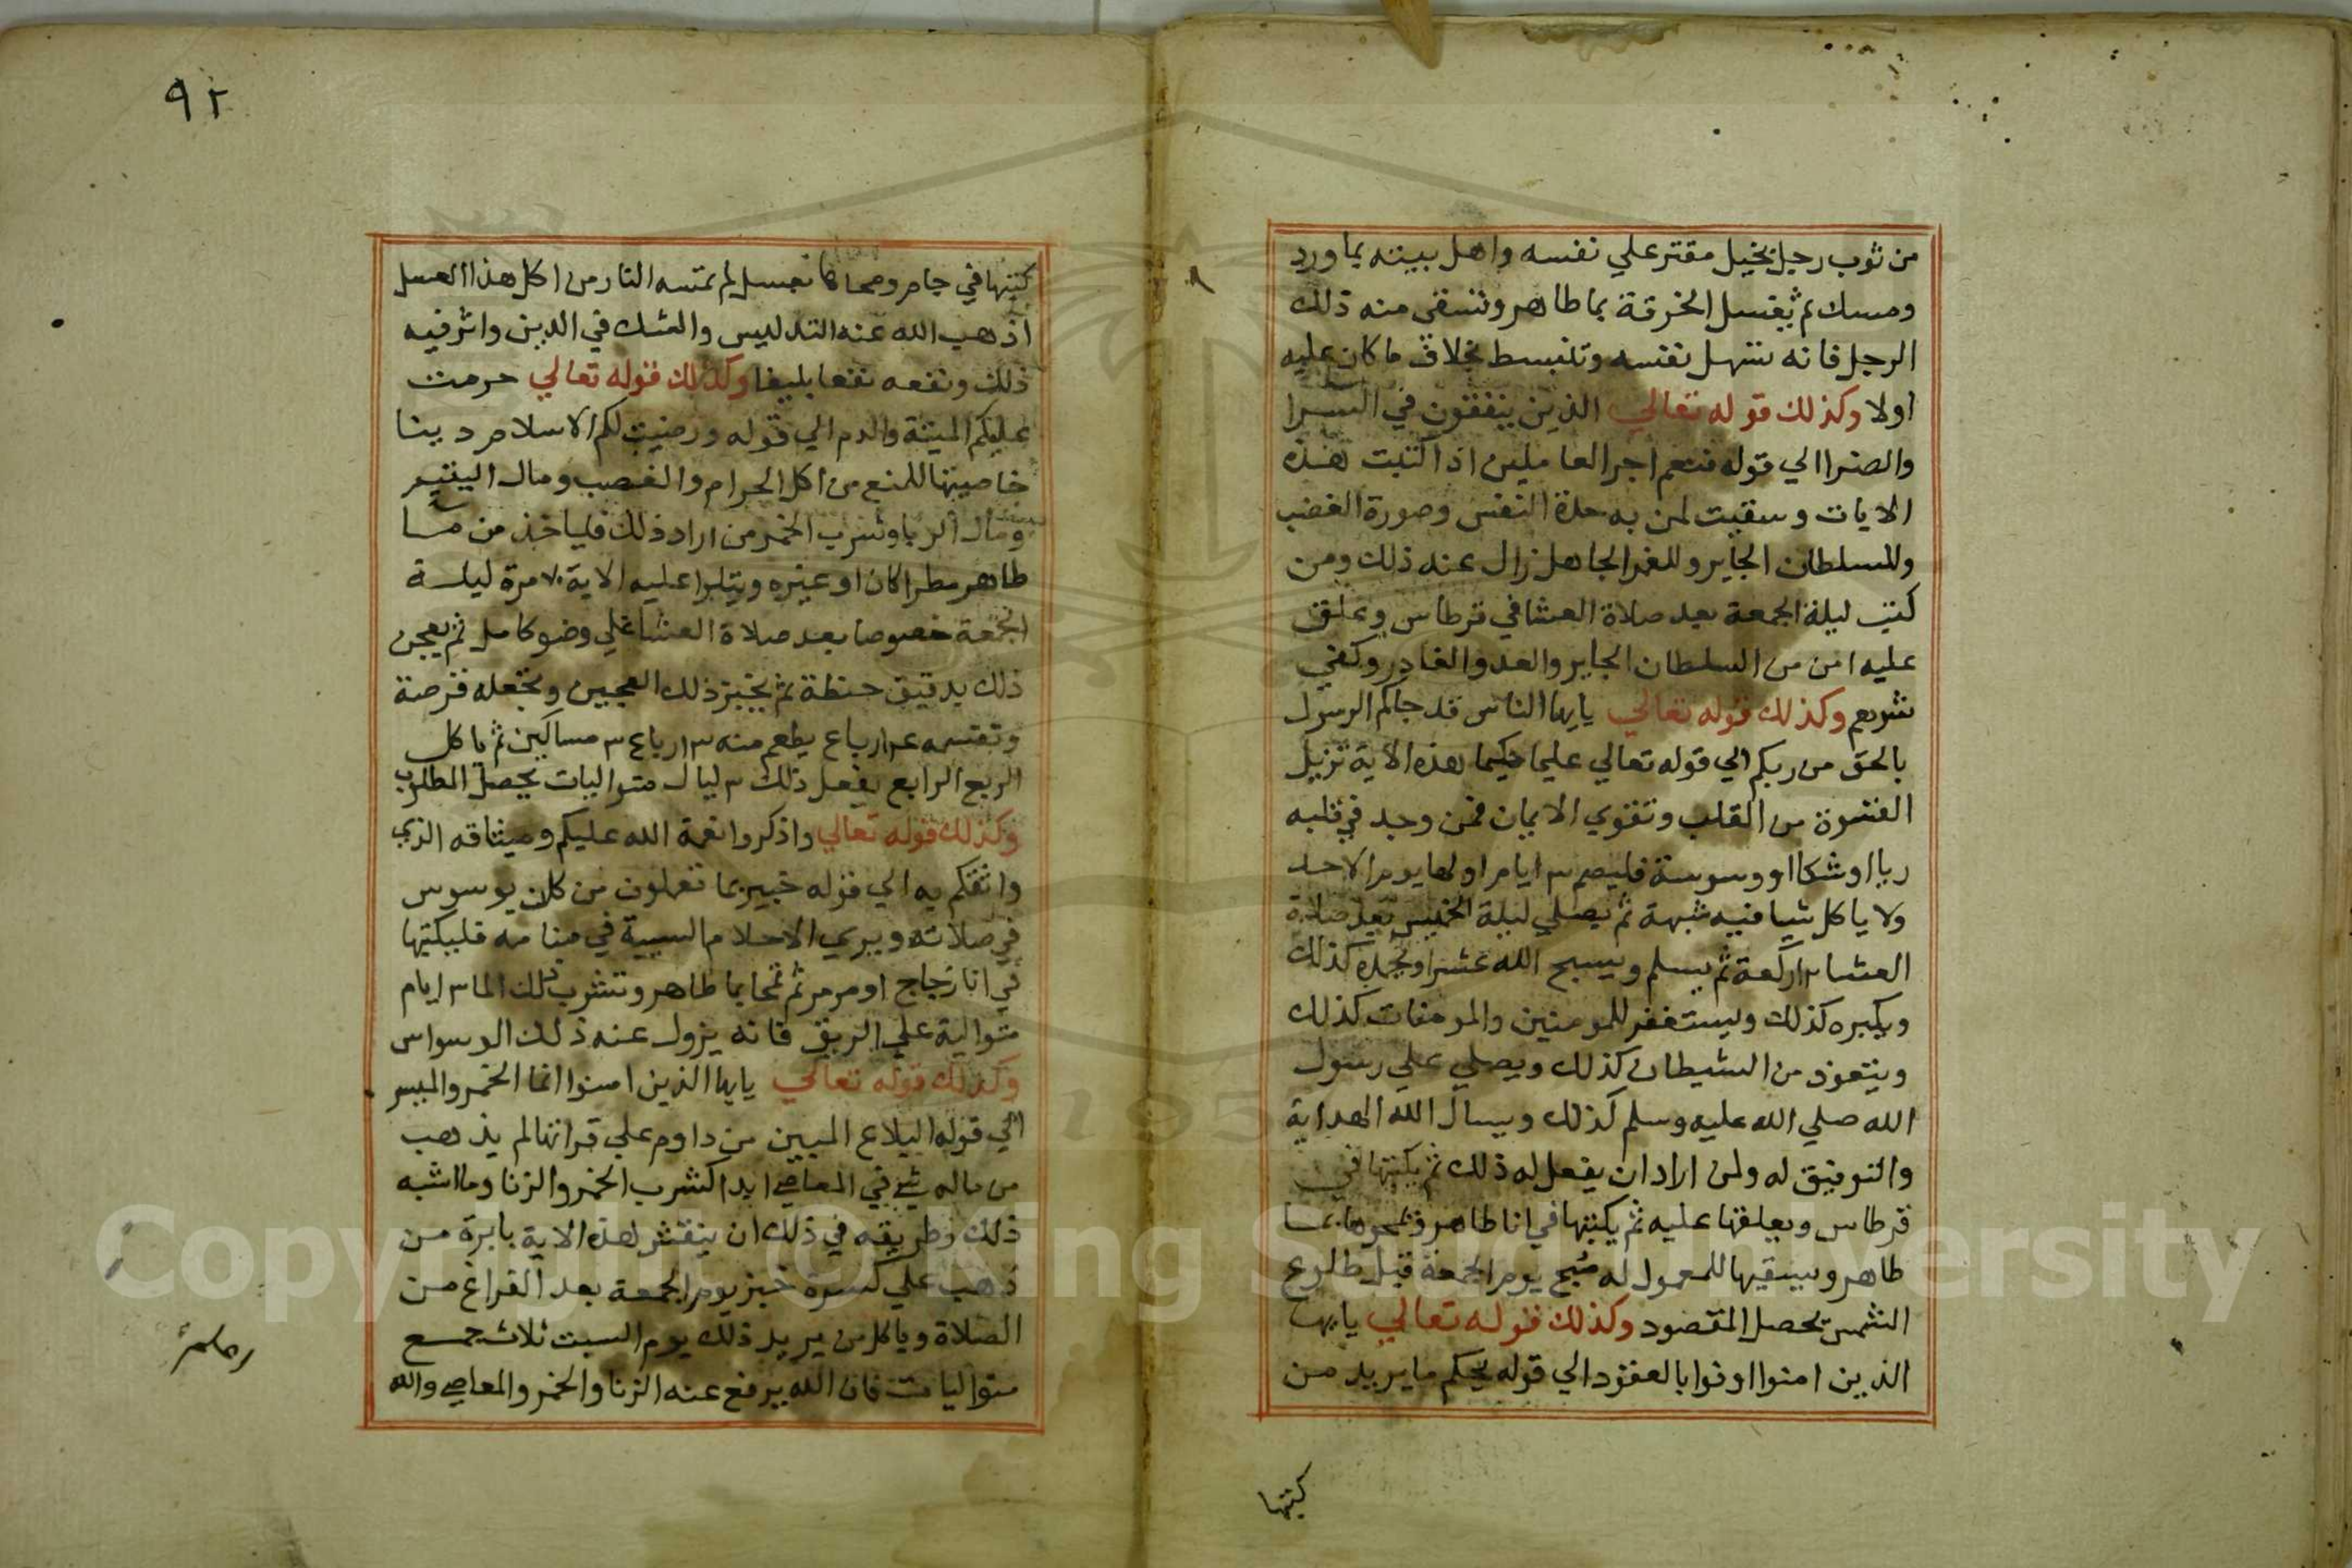 من ثوب رجل بخيل مقتر علي نفسه واهل بيته بماورد
ومسك ثم يغسل الخرقة بما طاهر وتسقى منه ذلك
الرجل فانه تسهل نفسه وتنبسط بخلاف ما كان عليه
اولا وكذلك قوله تعالي الذين ينفقون في السرا
والضرا الي قوله فنعم اجر العاملين اذا كتبت هذه
الايات وسقيت لمن به حدة النفس وصورة الغضب
وللسلطان الجاير وللغمر الجاهل زال عنه ذلك ومن
كتب ليلة الجمعة بعد صلاة العشا في قرطاس وعلق
عليه امن من السلطان الجاير والعدو الغادر وكفي
شرهم وكذلك قوله تعالي يايها الناس قد جاكم الرسول
بالحق من ربكم الي قوله تعالي عليما حكيما هذه الاية تزيل
القسوة من القلب وتقوي الايمان فمن وجد في قلبه
ريا او شكا او وسوسة فليصم ٣ ايام اولها يوم الاحد
ولا ياكل شيا فيه شبهة ثم يصلي ليلة الخميس بعد صلاة
العشا ١٢ ركعة ثم يسلم ويسبح الله عشرا ويحمده كذلك
ويكبره كذلك ويستغفر للمومنين والمومنات كذلك
ويتعوذ من الشيطان كذلك ويصلي علي رسول
الله صلي الله عليه وسلم كذلك ويسال الله الهداية
والتوفيق له ولمن اراد ان يفعل له ذلك ثم يكتبها في
قرطاس ويعلقها عليه ثم يكتبها في انا طاهر ويمحوها بما
طاهر ويسقيها للمعمول له صبح يوم الجمعة قبل طلوع
الشمس يحصل المقصود وكذلك قوله تعالي يايها
الذين امنوا اوفوا بالعقود الي قوله يحكم ما يريد من
كتبها
٩٢
كتبها في جام ومحاها بعسل لم تمسه النار من اكل هذا العسل
اذهب الله عنه التدليس والشك في الدين واثر فيه
ذلك ونفعه نفعا بليغا وكذلك قوله تعالي حرمت
عليكم الميتة والدم الي قوله ورضيت لكم الاسلام دينا
خاصيتها للمنع من اكل الحرام والغصب ومال اليتيم
ومال الربا وشرب الخمر من اراد ذلك فلياخذ من ما
طاهر مطرا كان او غيره ويتلوا عليه الاية ٧٠ مرة ليلة
الجمعة خصوصا بعد صلاة العشا علي وضو كامل ثم يعجن
ذلك بدقيق حنطة ثم يخبز ذلك العجين وتجعله قرصة
وتقسمه ٤ ارباع يطعم منه ٣ ارباع ٣ مساكين ثم ياكل
الربع الرابع يفعل ذلك ٣ ليال متواليات يحصل المطلوب
وكذلك قوله تعالي واذكروا نعمة الله عليكم وميثاقه الذي
واثقكم به الي قوله خبير بما تعملون من كان يوسوس
في صلاته ويري الاحلام السيية في منامه فليكتبها
في انا زجاج او مرمر ثم تمحا بما طاهر وتشرب ذلك الما ٣ ايام
متوالية علي الريق فانه يزول عنه ذلك الوسواس
وكذلك قوله تعالي يايها الذين امنوا انما الخمر والميسر
الي قوله البلاغ المبين من داوم علي قراتها لم يذهب
من ماله شي في المعاصي ابدا كشرب الخمر والزنا وما اشبه
ذلك وطريقه في ذلك ان ينقش هذه الاية بابرة من
ذهب علي كسرة خبز يوم الجمعة بعد الفراغ من
الصلاة وياكل من يريد ذلك يوم السبت ثلاث جمع
متواليات فان الله يرفع عنه الزنا والخمر والمعاصي والله
Copyright © King Saud University